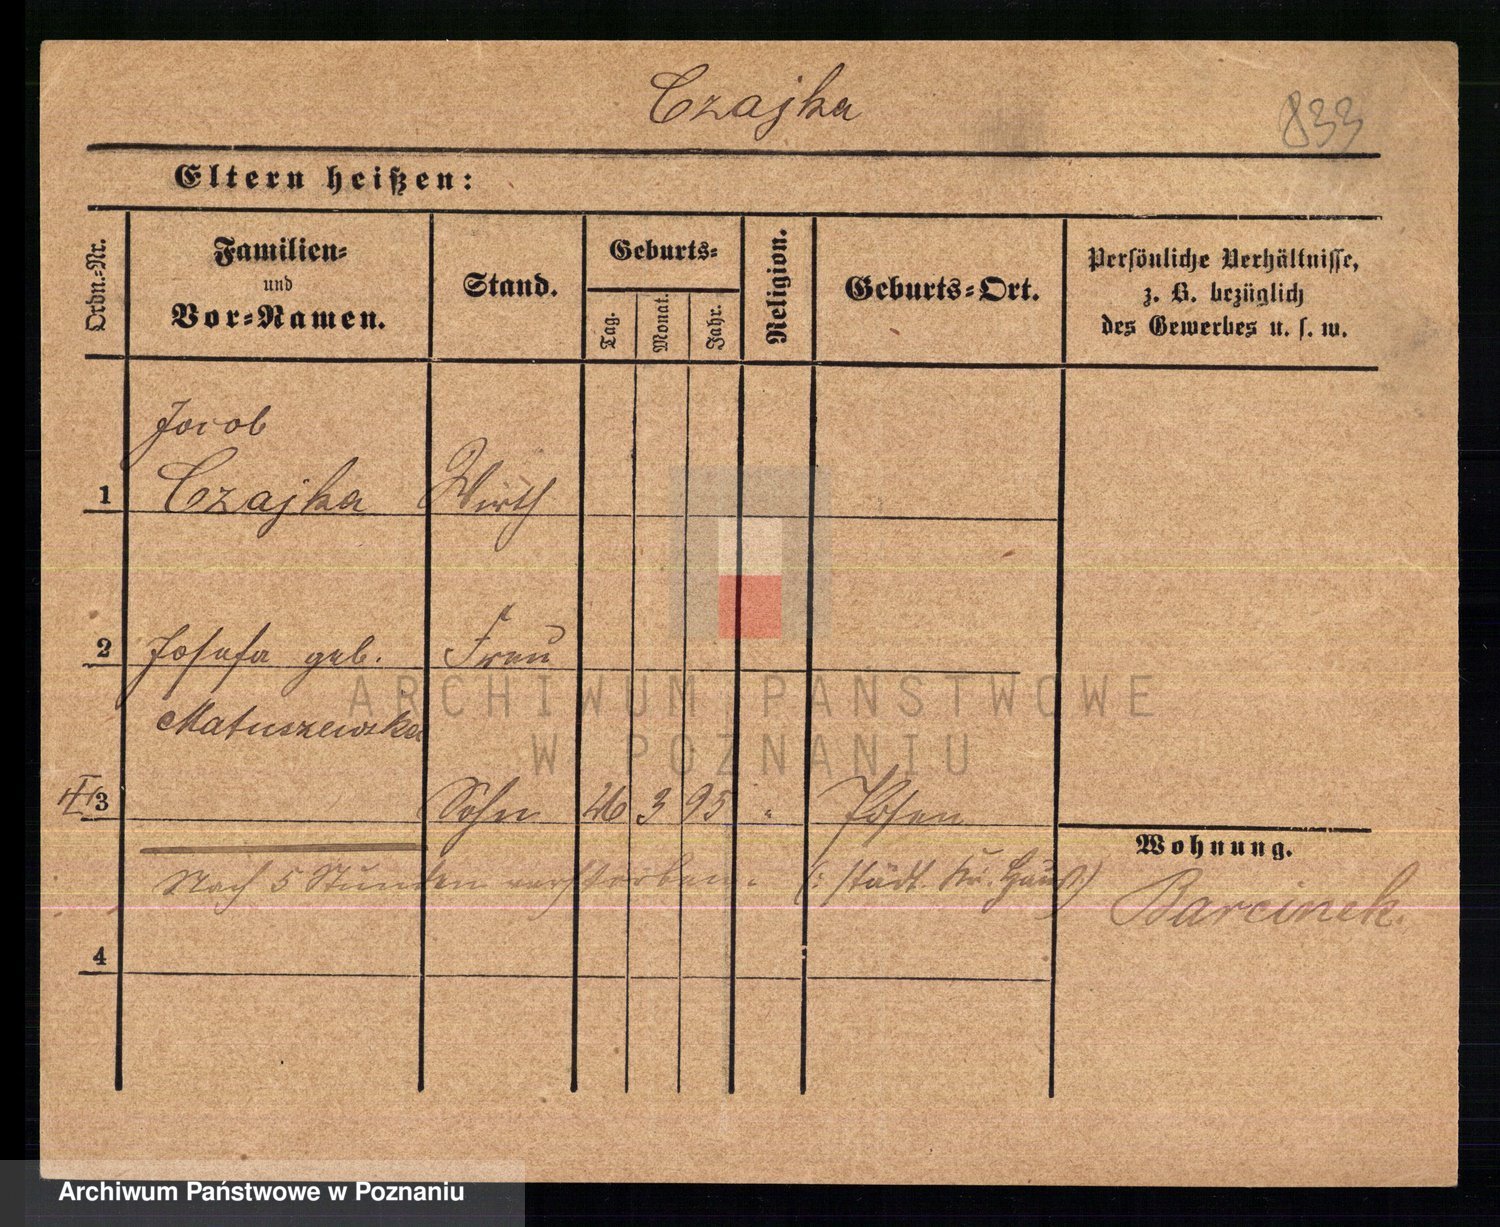 Czajka
833
Eltern heißen:
Ordn.-Nr.
Familien-
und
Vor-Namen.
Stand.
Geburts-
Tag.
Monat.
Jahr.
Religion.
Geburts-Ort.
Persönliche Verhältnisse,
z. B. bezüglich
des Gewerbes u. s. w.
Jacob
1 Czajka Wirth
2 Josefa geb. Frau
Matuszewska
3 Sohn 26 3 95 " Posen
Wohnung.
Nach 5 Stunden verstorben. (: städt. Kr. Hauß :)
Barcinek.
4
ARCHIWUM PAŃSTWOWE
W POZNANIU
Archiwum Państwowe w Poznaniu